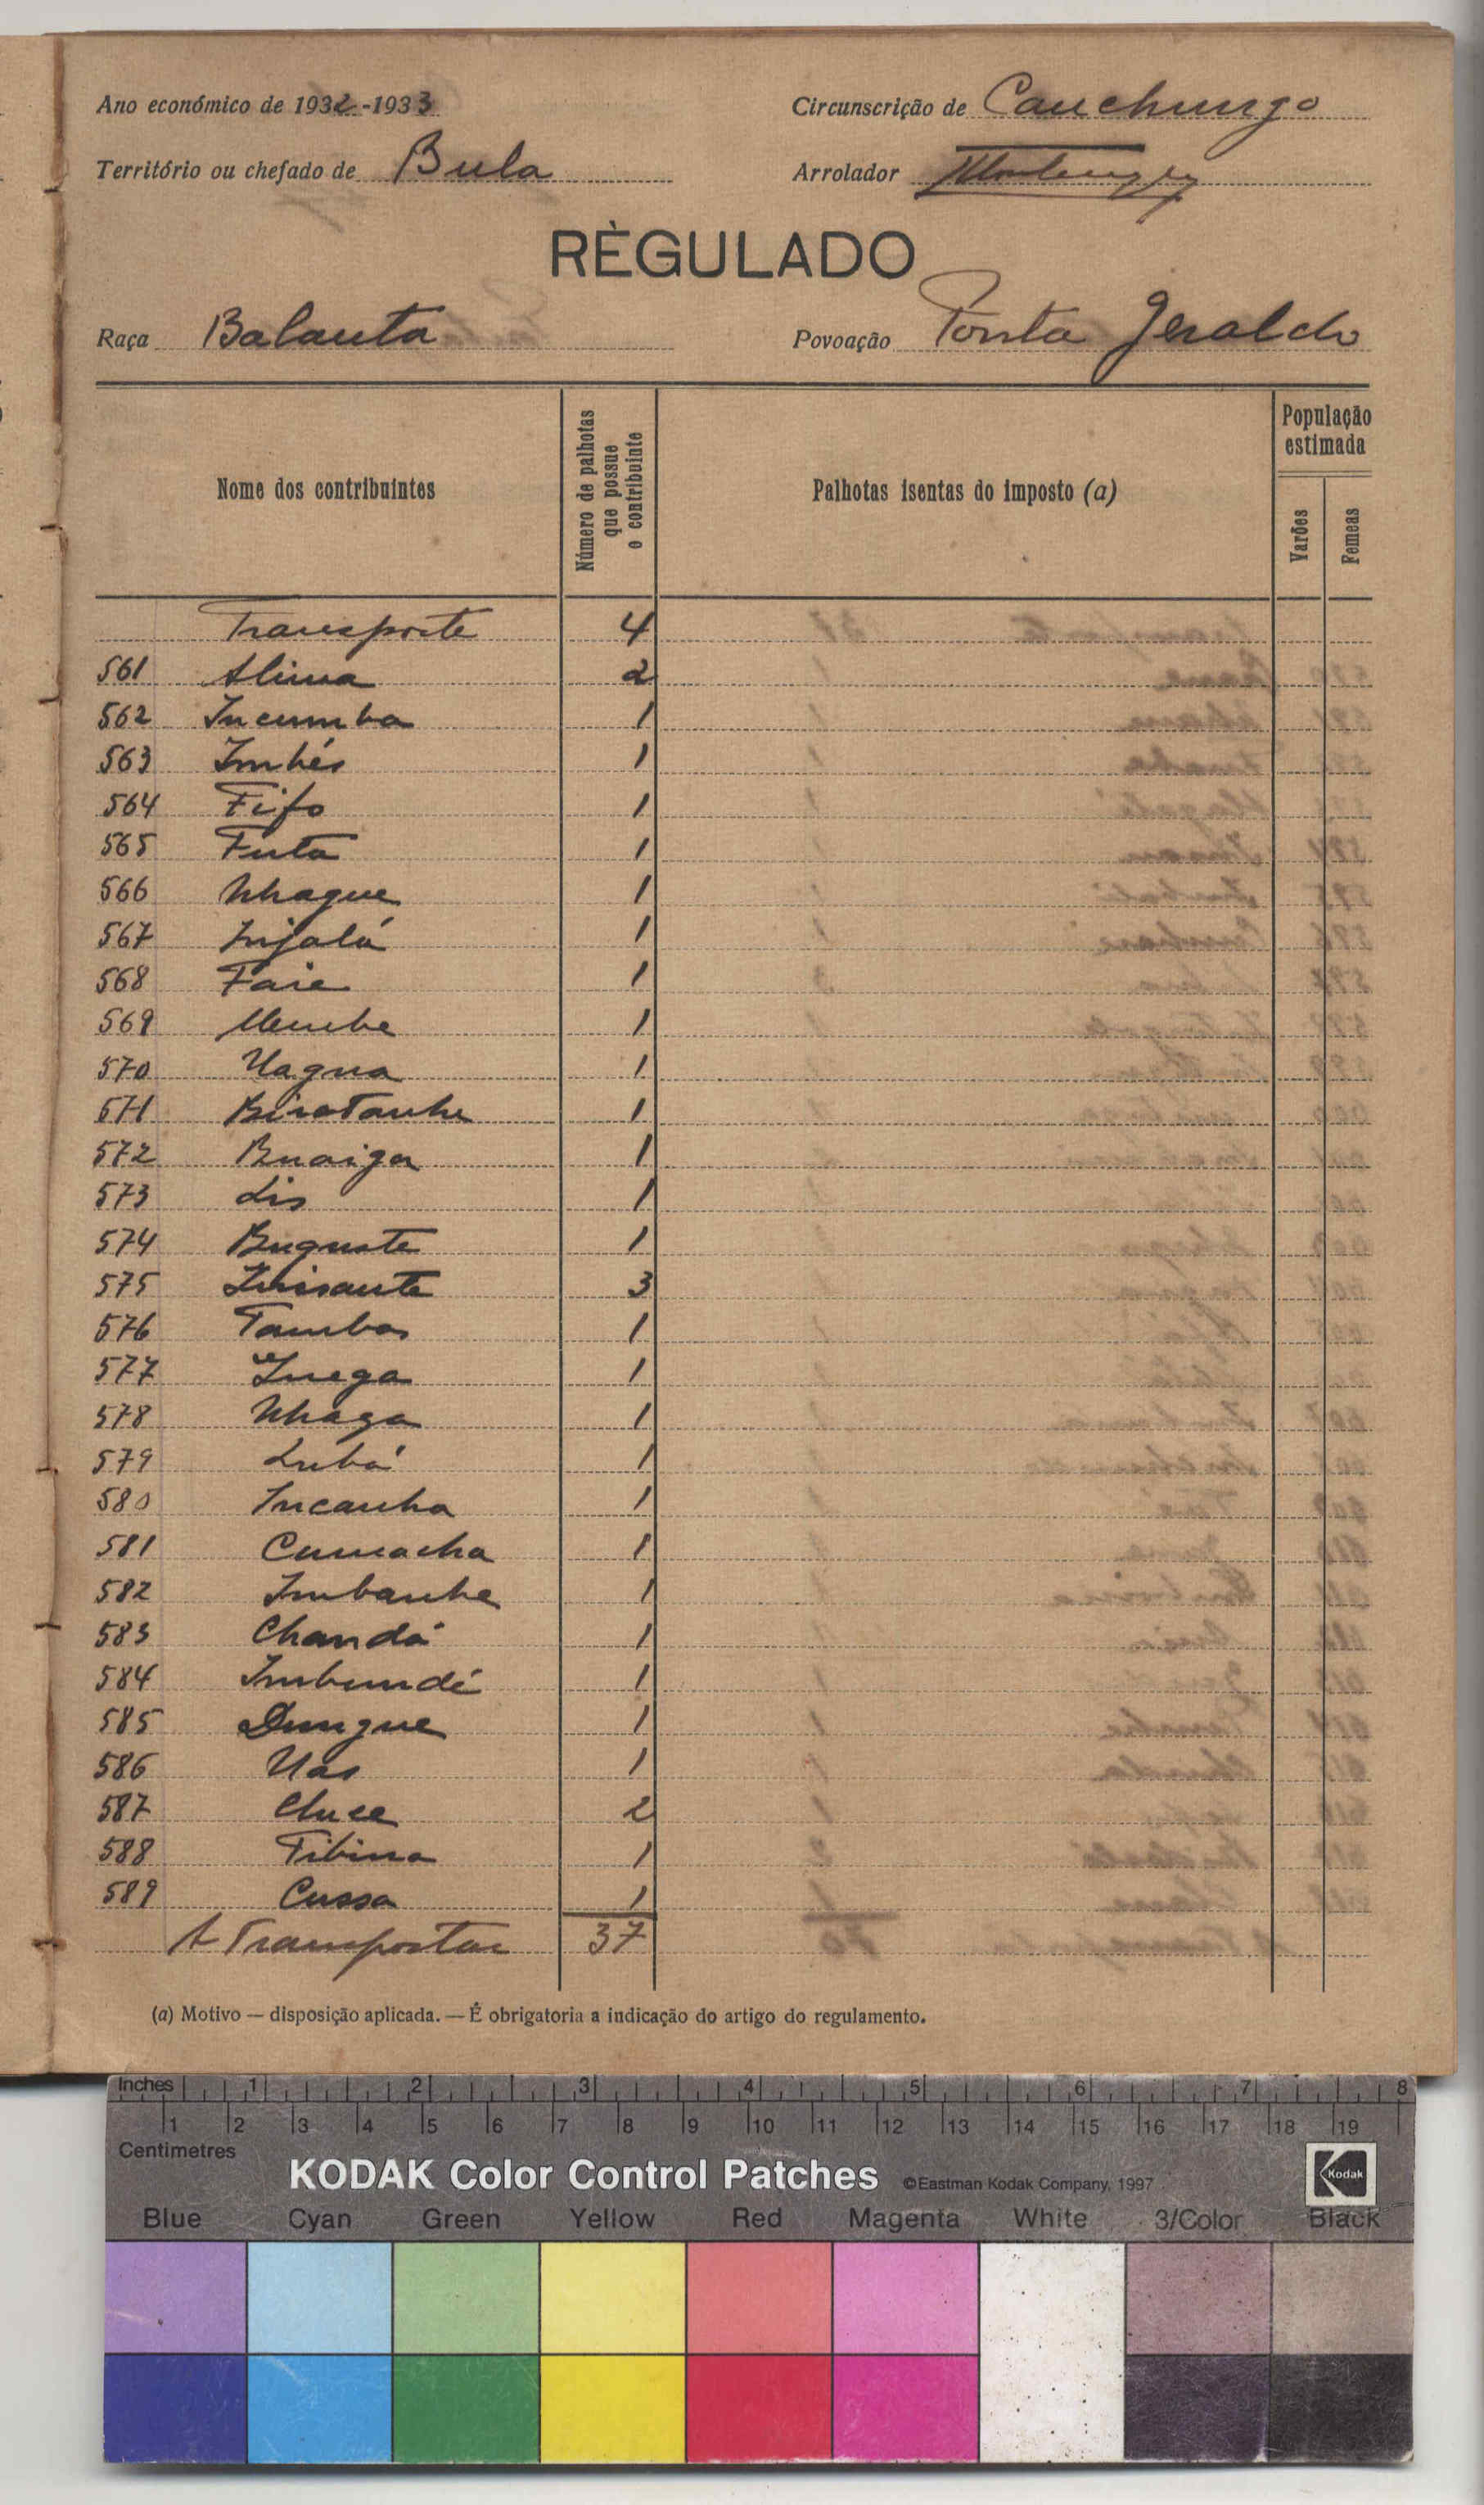 Ano económico de 1932-1933
Circunscrição de Canchungo
Território ou chefado de Bula
Arrolador
RÈGULADO
Raça Balanta
Povoação Ponta Geraldo
Nome dos contribuintes
Número de palhotas que possue o contribuinte
Palhotas isentas do imposto (a)
População estimada
Varões
Femeas
Transporte 4
561 Alima 2
562 Incumba 1
563 Imbés 1
564 Fifo 1
565 Futa 1
566 Nhague 1
567 Injalá 1
568 Faie 1
569 1
570 Nagna 1
571 Biratanhe 1
572 Buaiga 1
573 Lis 1
574 Buguate 1
575 Insisante 3
576 Tambas 1
577 Inega 1
578 Nhaga 1
579 Lubá 1
580 Incanha 1
581 Cumacha 1
582 Imbanhe 1
583 Chandá 1
584 Imbundé 1
585 Dungue 1
586 Nas 1
587 2
588 Fibina 1
589 Cussa 1
A Transportar 37
(a) Motivo — disposição aplicada. — É obrigatoria a indicação do artigo do regulamento.
Inches 1 2 3 4 5 6 7 8
1 2 3 4 5 6 7 8 9 10 11 12 13 14 15 16 17 18 19
Centimetres
KODAK Color Control Patches ©Eastman Kodak Company, 1997 Kodak
Blue Cyan Green Yellow Red Magenta White 3/Color Black